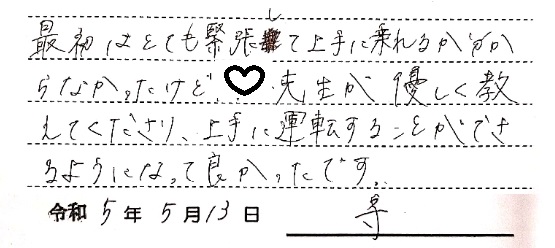 最初はとても緊張して上手に乗れるか分か
らなかったけど、先生が優しく教
えてくださり、上手に運転することができ
るようになって良かったです。
令和5年5月13日